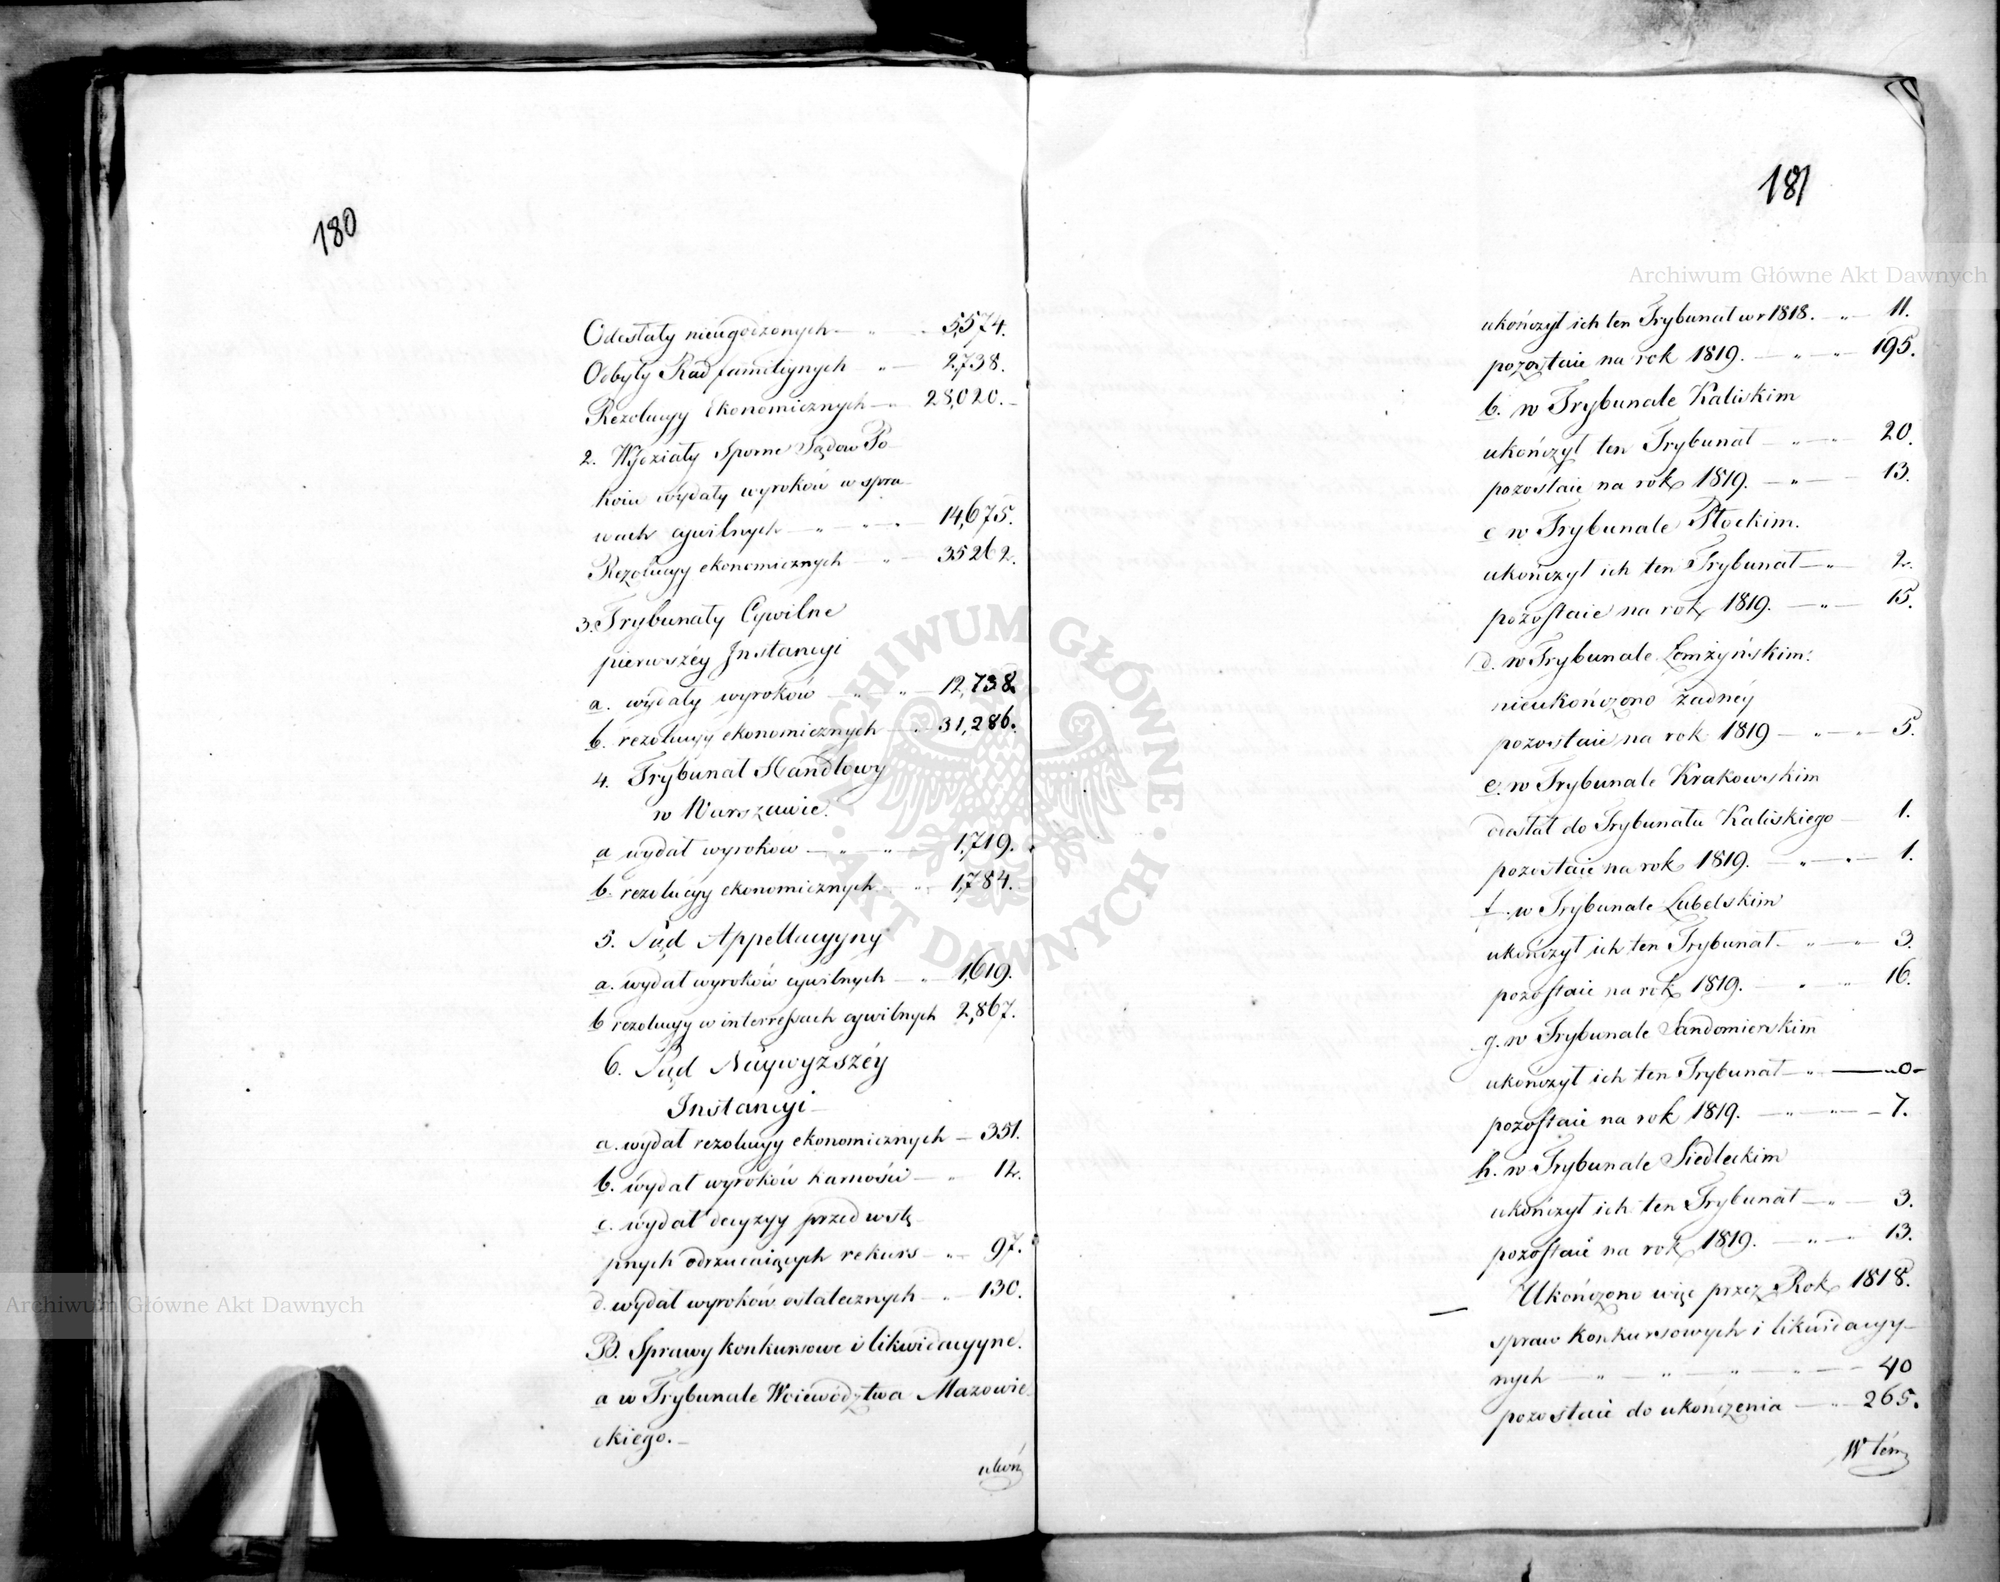 180
Odesłały nieugodzonych — „ — 5,574.
Odbyły Rad familiynych „ — 2,738.
Rezolucyy Ekonomicznych — „ 28,020. —
2. Wydziały Sporne Sądow Po-
koiu wydały wyroków w spra-
wach cywilnych — „ — „ 14,675.
Rezolucyy ekonomicznych — „ — 35262.
3. Trybunały Cywilne
pierwszéy Instancyi
a. wydały wyroków — „ — „ — 12,738.
b. rezolucyy ekonomicznych — „ 31,286.
4. Trybunał Handlowy
w Warszawie.
a wydał wyroków — „ — „ — 1,719.
b. rezolucyy ekonomicznych — „ 1,784.
5. Sąd Appellacyyny
a. wydał wyroków cywilnych — „ 1,619.
b rezolucyy w interressach cywilnych 2,867.
6. Sąd Naywyższéy
Instancyi —
a. wydał rezolucyy ekonomicznych — 351.
b. wydał wyroków karności — „ 12.
c. wydał decyzyy przedwstę-
pnych odrzucaiących rekurs — „ 97.
d. wydał wyroków ostatecznych — „ 130.
B. Sprawy konkursowe i likwidacyyne.
a w Trybunale Woiewództwa Mazowie-
ckiego. —
ukoń
181
ukończył ich ten Trybunał w r 1818. — „ — 11.
pozostaie na rok 1819. — „ — „ 195.
b. w Trybunale Kaliskim
ukończył ten Trybunał — „ — „ 20.
pozostaie na rok 1819. — „ — 13.
c w Trybunale Płockim.
ukończył ich ten Trybunał — „ 2.
pozostaie na rok 1819. — „ — 15.
d. w Trybunale Łomżyńskim:
nieukończono żadnéy
pozostaie na rok 1819 — „ — „ 5.
e. w Trybunale Krakowskim
odesłał do Trybunału Kaliskiego — 1.
pozostaie na rok 1819. — „ — „ 1.
f. w Trybunale Lubelskim
ukończył ich ten Trybunał — „ — „ 3.
pozostaie na rok 1819. — „ — „ 16.
g. w Trybunale Sandomierskim
ukończył ich ten Trybunał — „ — „ 0 —
pozostaie na rok 1819. — „ — „ — 7.
h. w Trybunale Siedleckim
ukończył ich ten Trybunał — „ — 3.
pozostaie na rok 1819. — „ — 13.
Ukończono więc przez Rok 1818.
spraw konkursowych i likwidacyy-
nych — „ — „ — „ — „ — 40
pozostaie do ukończenia — „ 265.
W tém
Archiwum Główne Akt Dawnych
Archiwum Główne Akt Dawnych
ARCHIWUM GŁÓWNE · AKT DAWNYCH ·